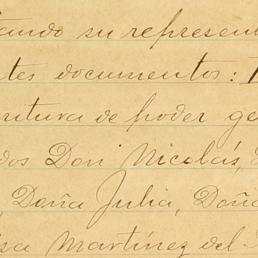 tando su represent
tes documentos: 1
critura de poder ge
dos Don Nicolás, d
, Doña Julia, Doña
isa Martínez del